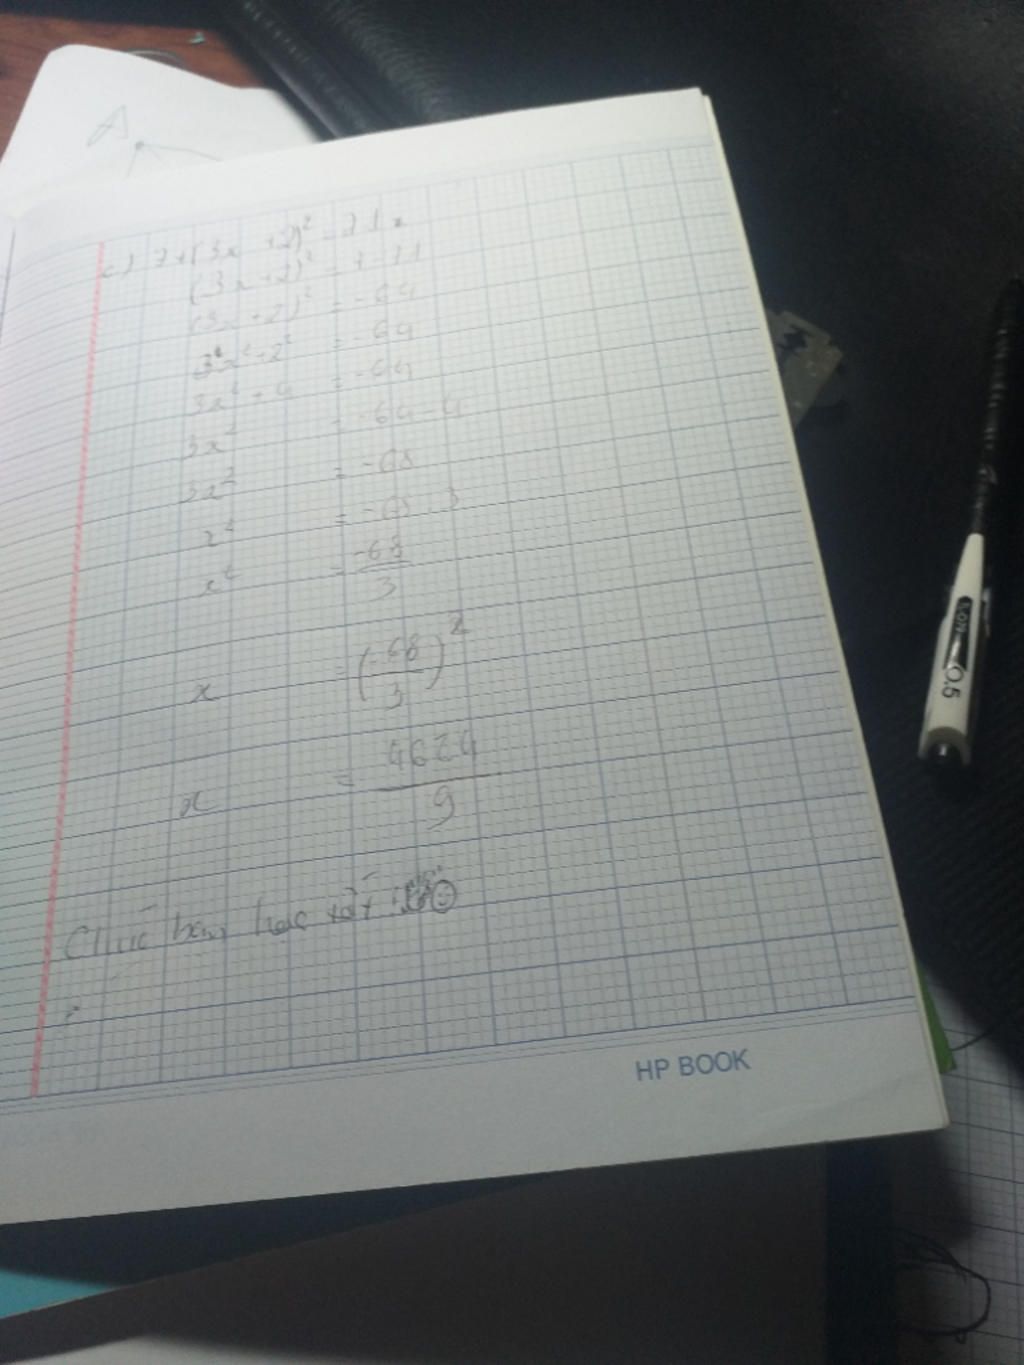 A
c) 7+(3x+2)² = 71
(3x+2)² = 7-71
(3x+2)² = -64
3x²+2² = -64
3x²+4 = -64
3x² = -64-4
3x² = -68
x² = -68:3
x² = -68/3
x = (-68/3)²
x = 4624/9
Chúc bạn học tốt
HP BOOK
0.5